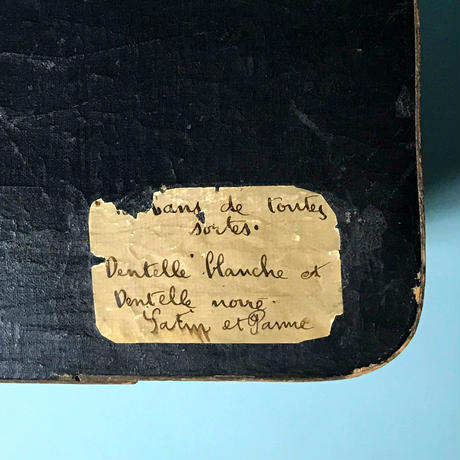 bans de toutes
sortes.
Dentelle blanche et
Dentelle noire.
Satin et Panne